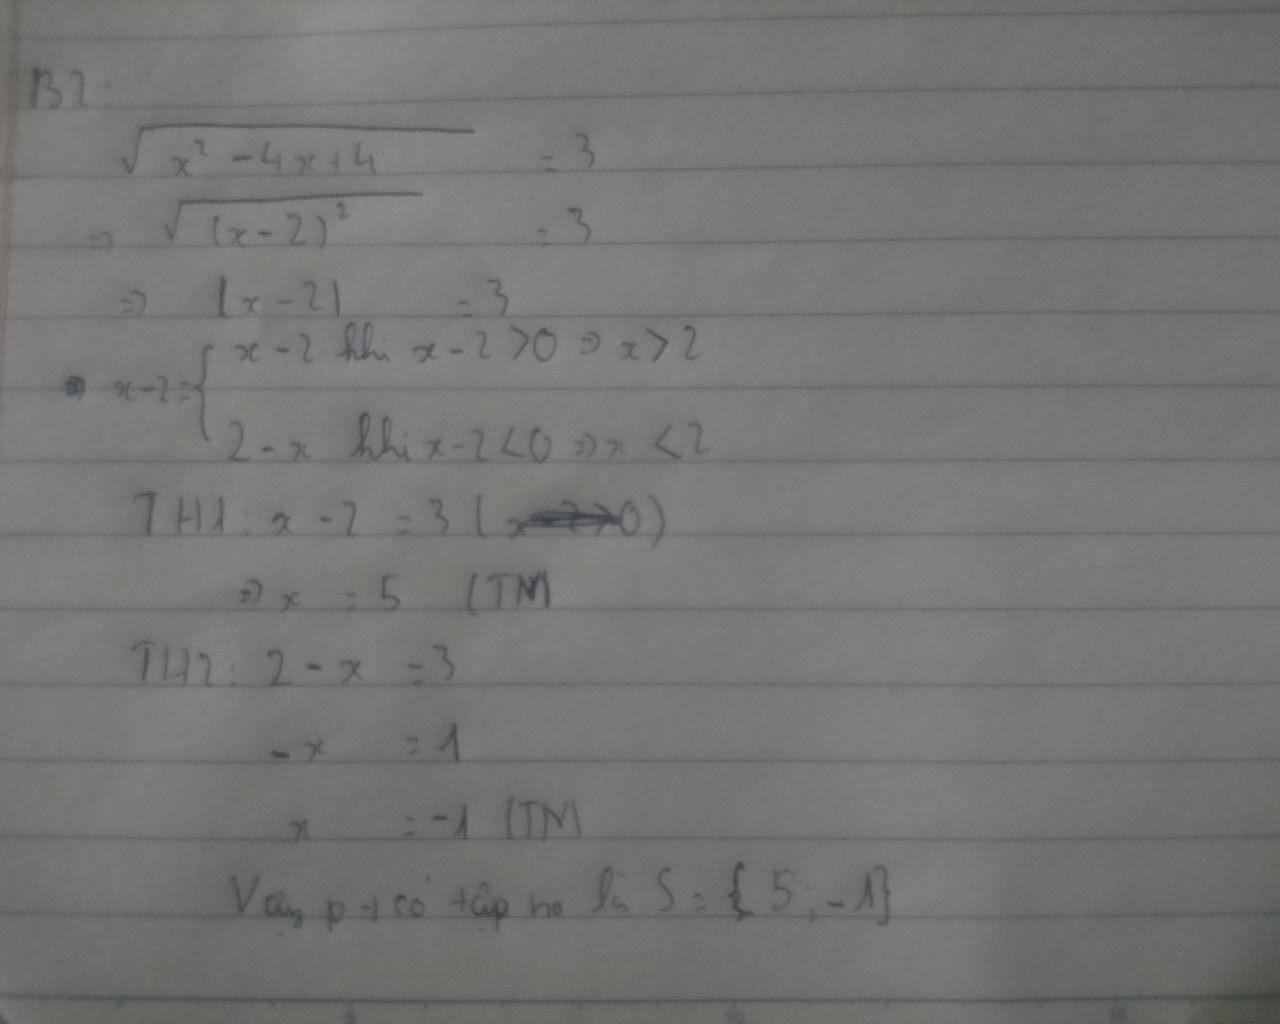 B2:
√(x² - 4x + 4) = 3
⇒ √((x - 2)²) = 3
⇒ |x - 2| = 3
x - 2 khi x - 2 > 0 ⇒ x > 2
x - 2 = {
2 - x khi x - 2 < 0 ⇒ x < 2
TH1: x - 2 = 3 ( 0)
⇒ x = 5 (TM
TH2: 2 - x = 3
- x = 1
x = -1 (TM
Vậy p+ có tập no là S = {5; -1}